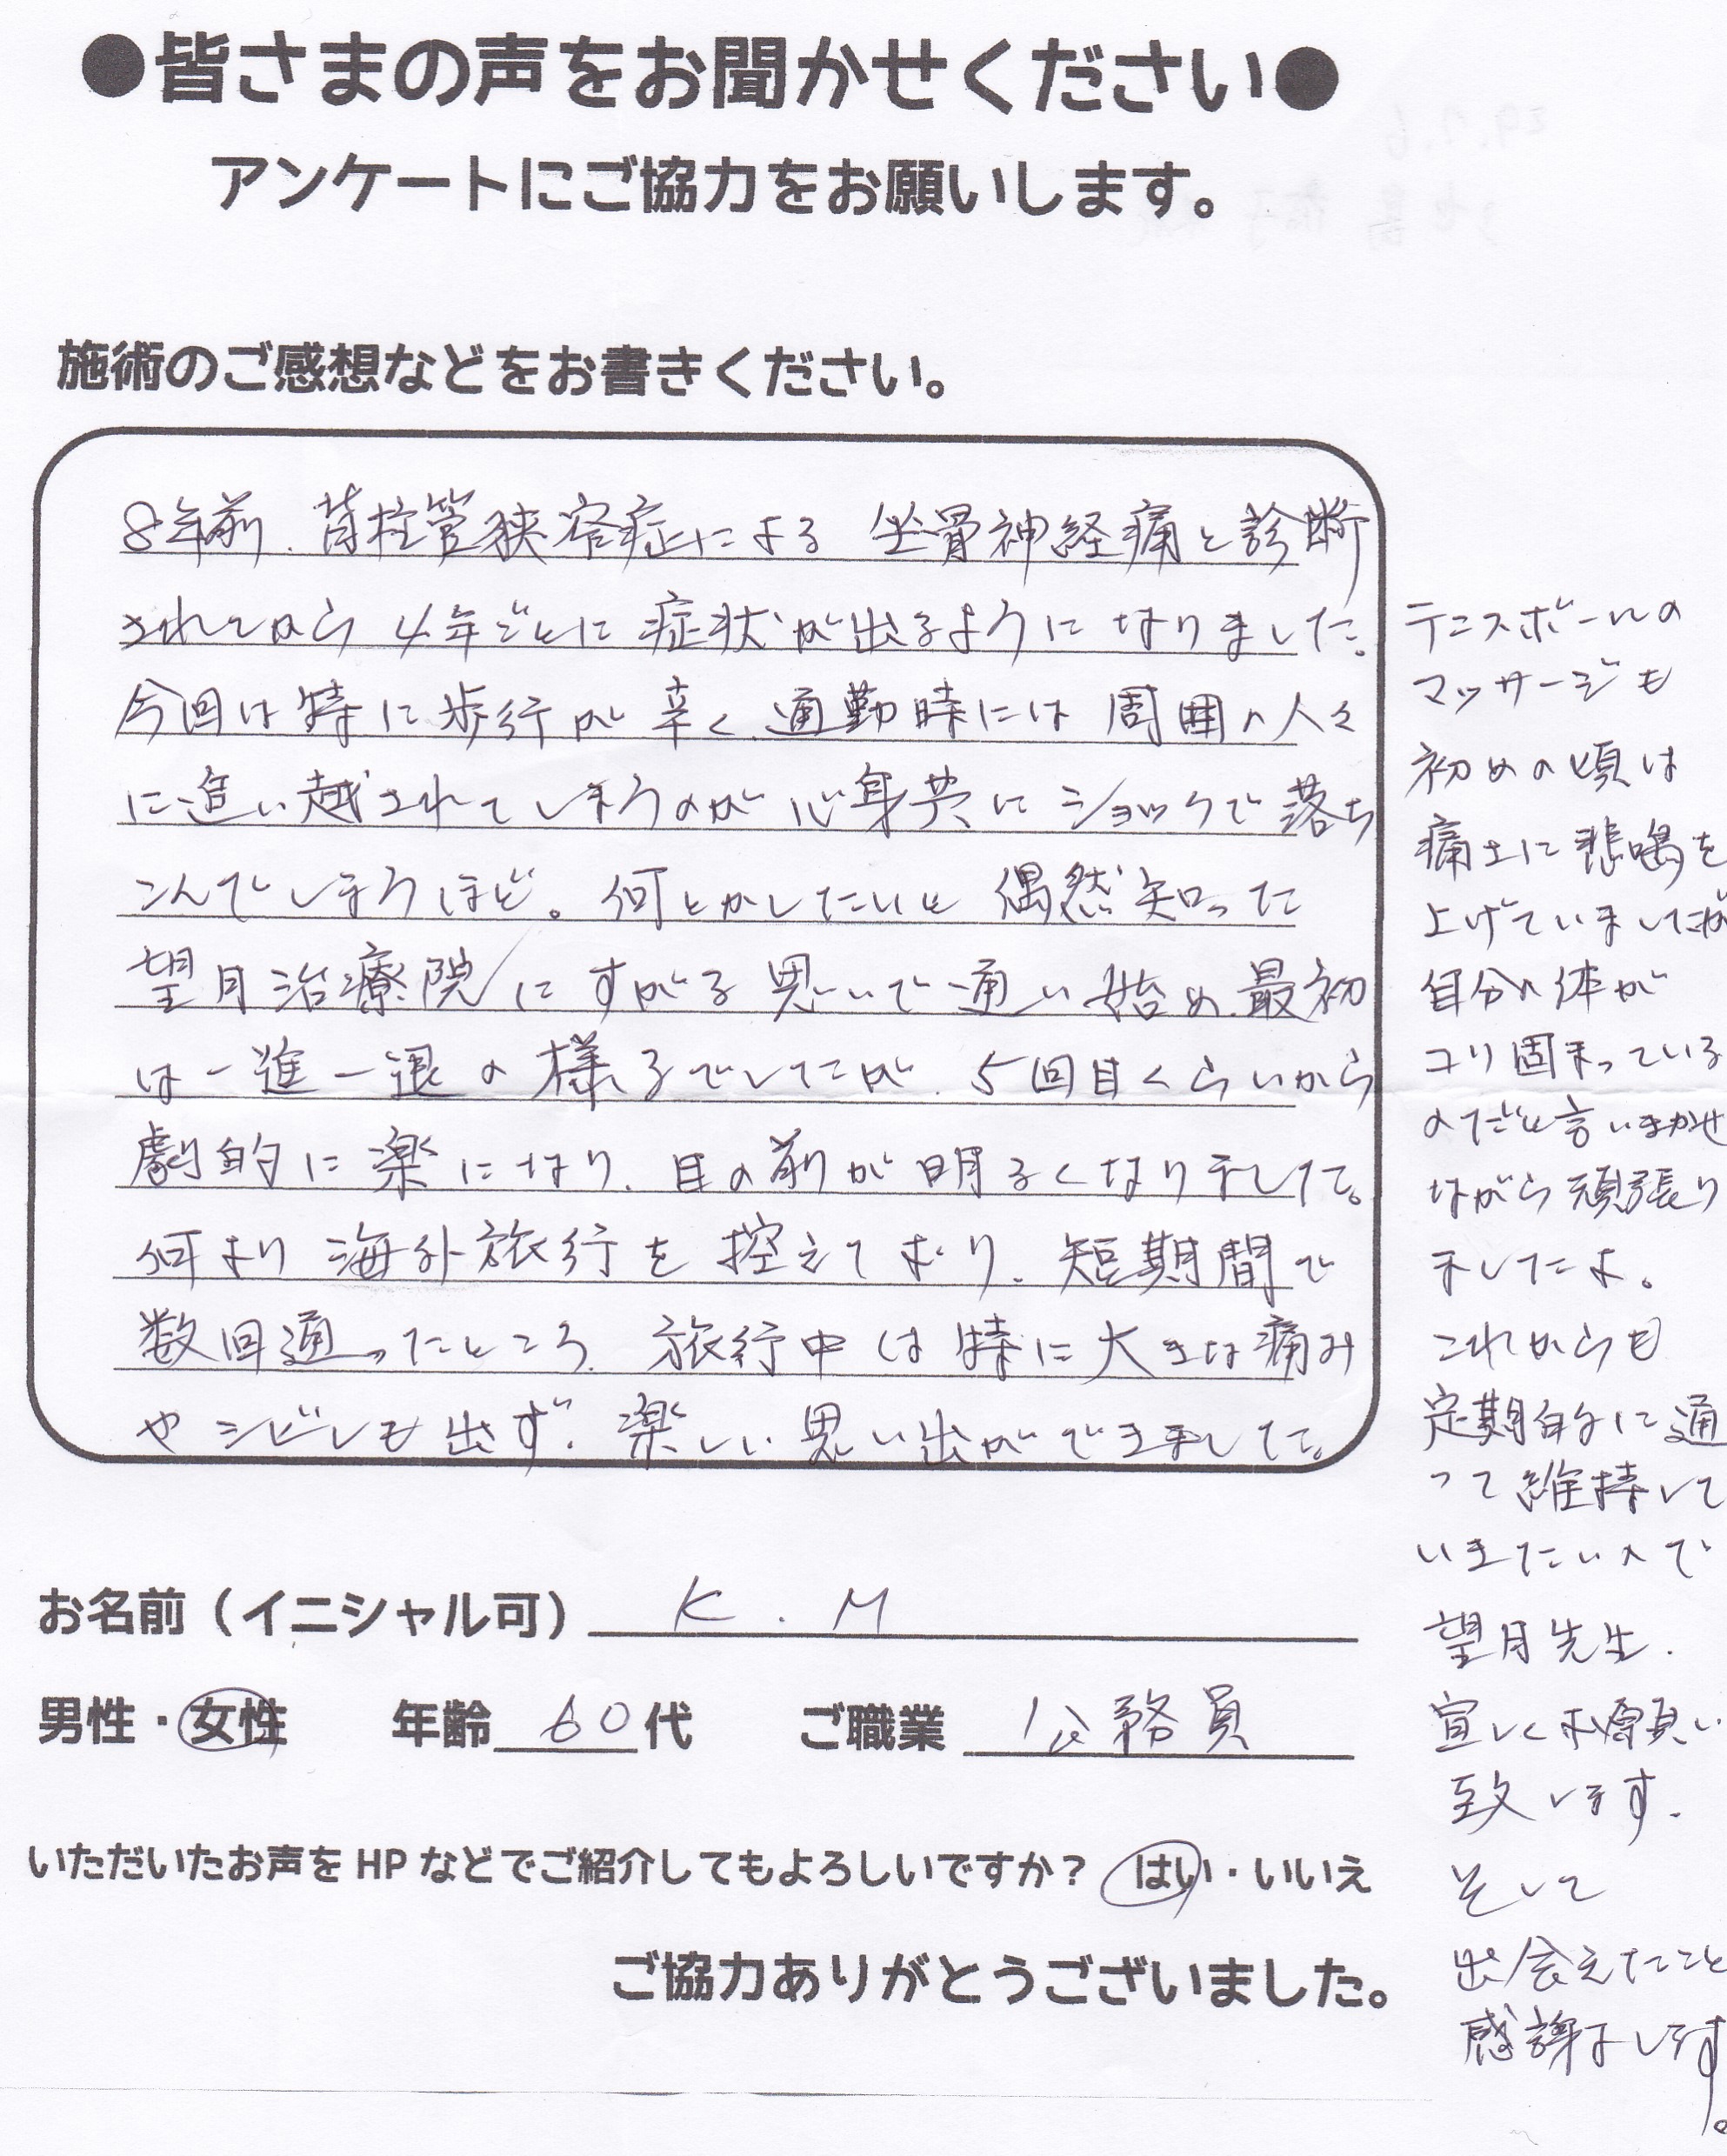 ●皆さまの声をお聞かせください●
アンケートにご協力をお願いします。
施術のご感想などをお書きください。
8年前、脊柱管狭窄症による 坐骨神経痛と診断
されてから 4年ごとに 症状が出るようになりました。
今回は特に歩行が辛く、通勤時には周囲の人々
に追い越されてしまうのが心身共にショックで落ち
こんでしまうほど。何とかしたいと 偶然知った
望月治療院にすがる思いで通い始め、最初
は一進一退の様子でしたが、5回目くらいから
劇的に楽になり、目の前が明るくなりました。
何より海外旅行を控えており、短期間で
数回通ったところ、旅行中は特に大きな痛み
やシビレも出ず、楽しい思い出ができました。
テニスボールの
マッサージも
初めの頃は
痛さに悲鳴を
上げていましたが
自分の体が
コリ固まっている
のだと言いきかせ
ながら頑張り
ましたよ。
これからも
定期的に通
って維持して
いきたいので
望月先生、
宜しくお願い
致します。
そして
出会えたこと
感謝します。
お名前（イニシャル可） K.M
男性・女性 年齢 60代 ご職業 公務員
いただいたお声をHPなどでご紹介してもよろしいですか？ はい・いいえ
ご協力ありがとうございました。